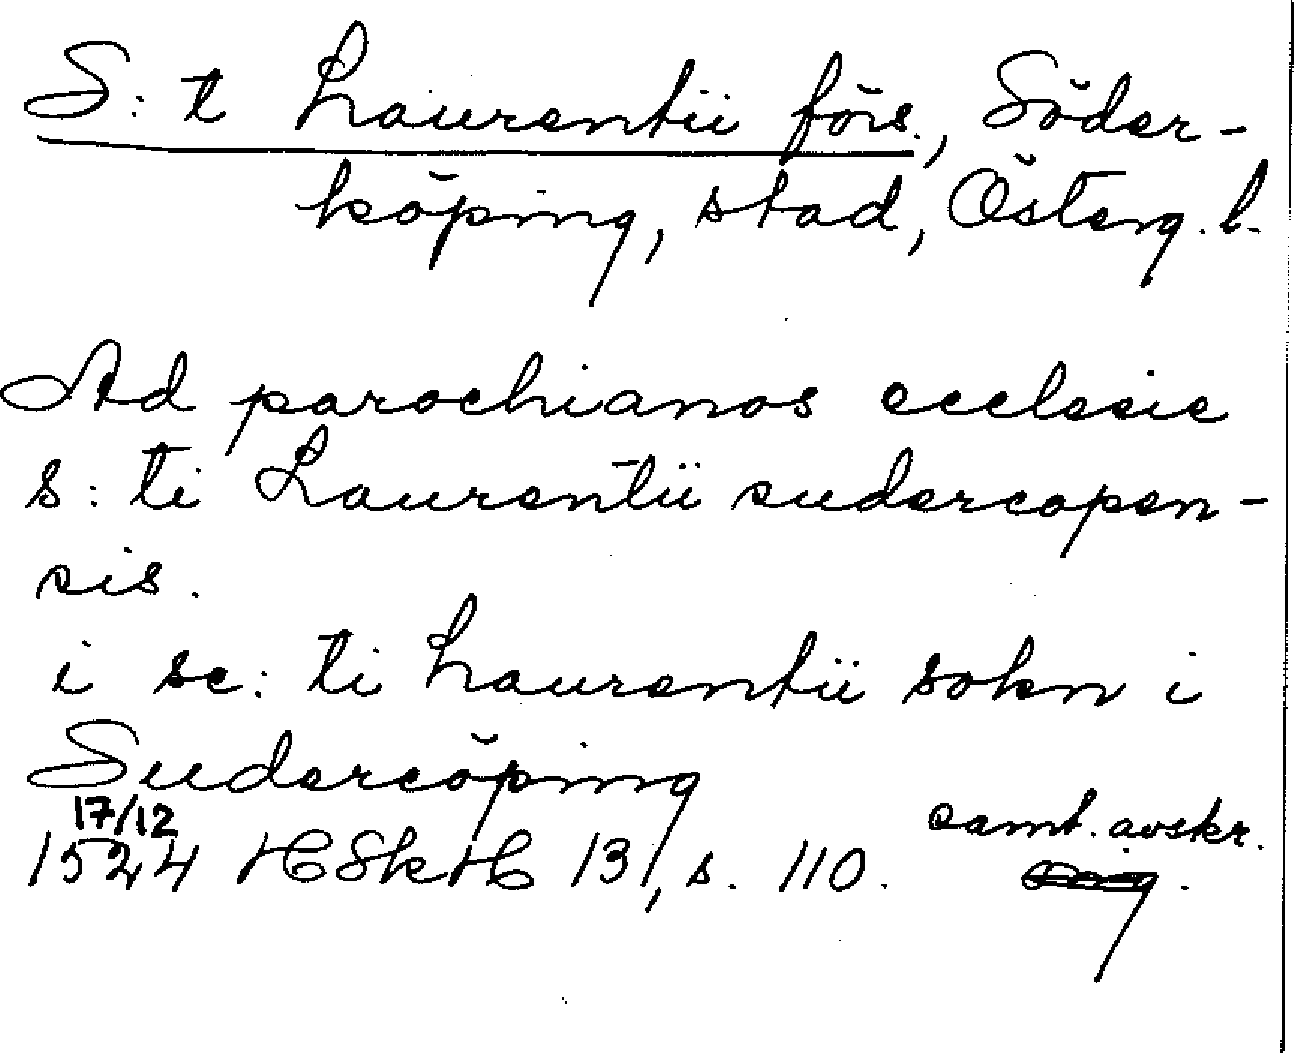 S:t Laurentii förs., Söder-
köping, stad, Österg. l.
Ad parochianos ecclesie
s:ti Laurentii sudercopen-
sis.
i sc:ti Laurentii sokn i
Sudercöping
17/12
samt. avskr.
1524 HSkH 13, s. 110.